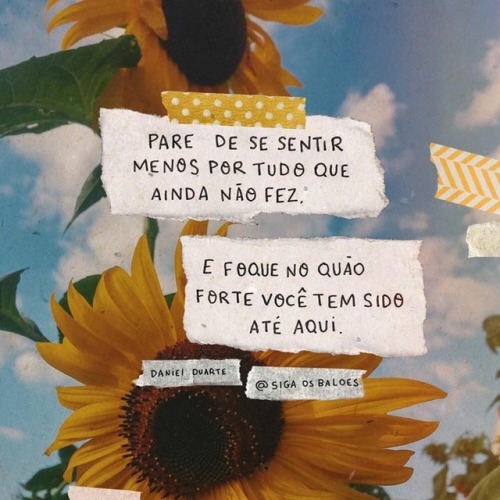 PARE DE SE SENTIR
MENOS POR TUDO QUE
AINDA NÃO FEZ.
E FOQUE NO QUÃO
FORTE VOCÊ TEM SIDO
ATÉ AQUI.
DANIEL DUARTE
@SIGA OS BALOES